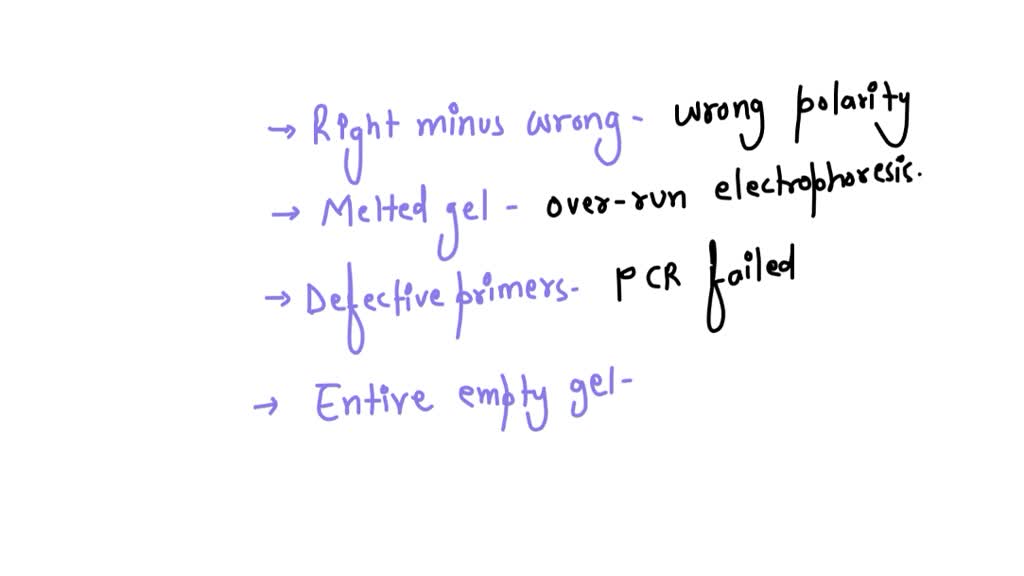 → Right minus wrong - wrong polarity
→ Melted gel - over-run electrophoresis.
→ Defective primers- PCR failed
→ Entire empty gel-